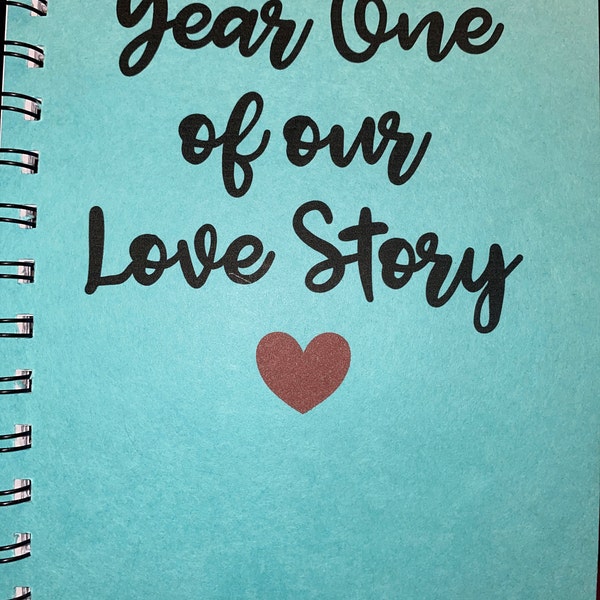 Year One
of our
Love Story